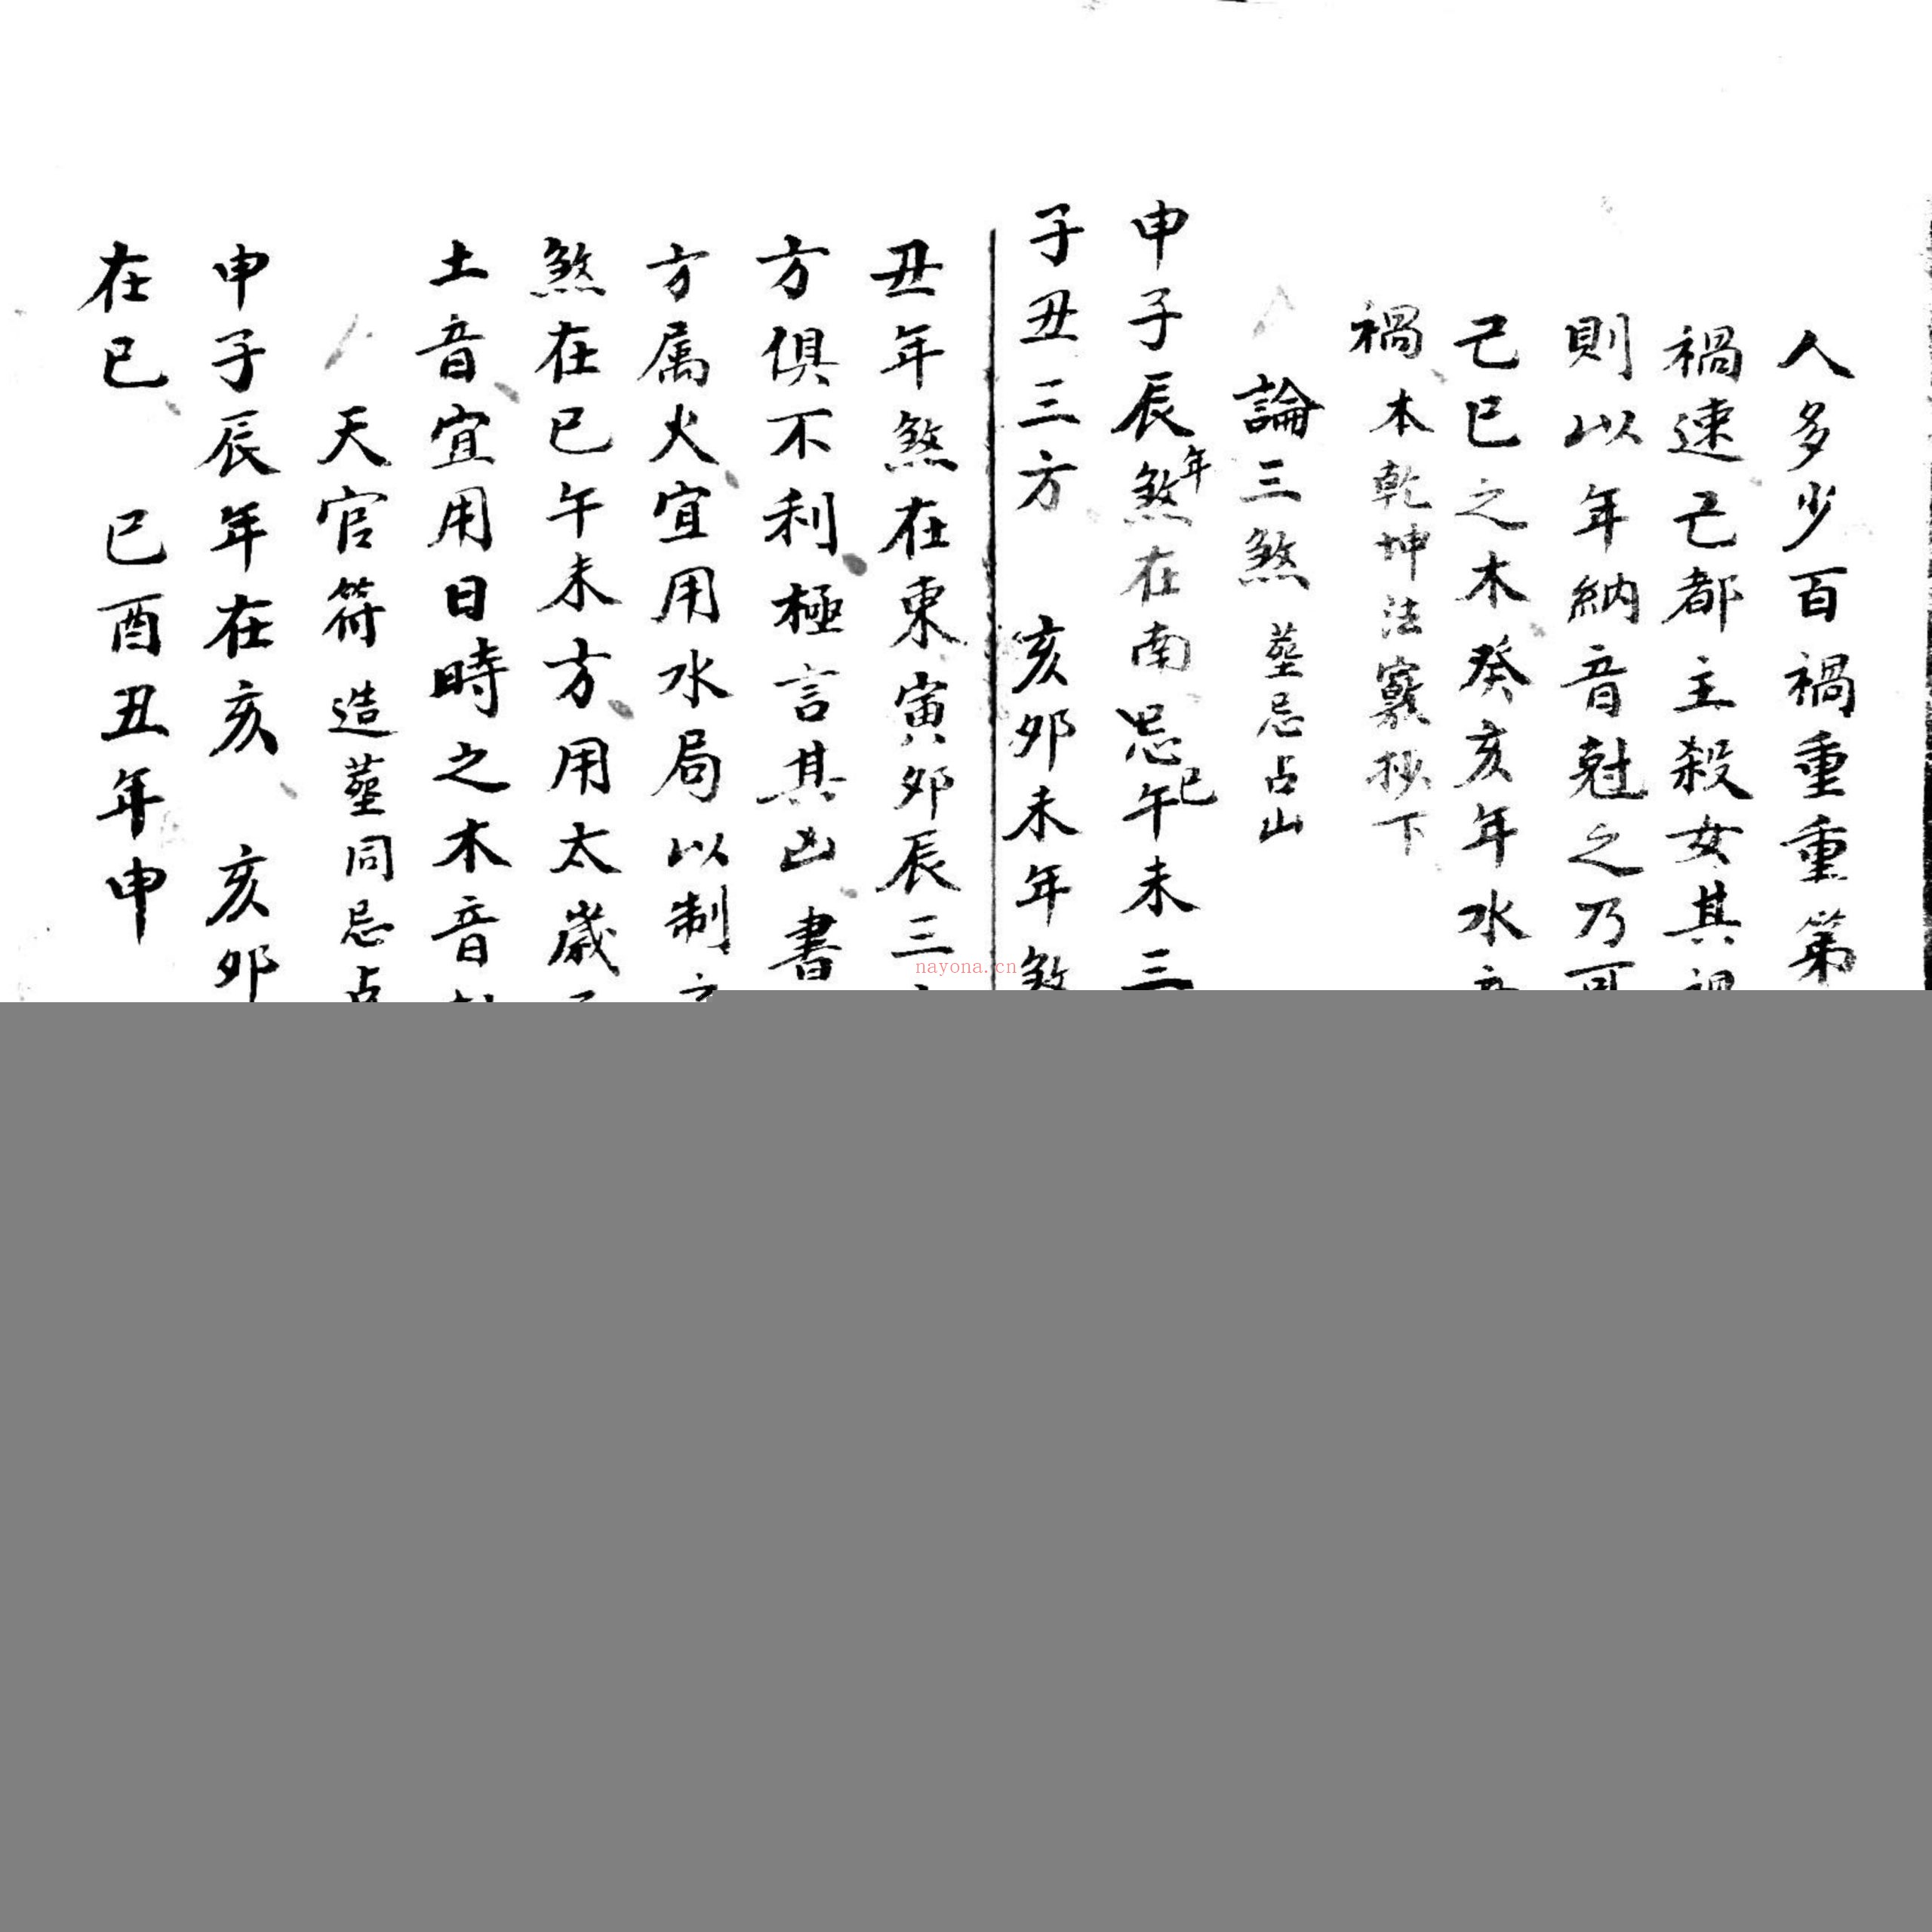 人多少百禍重重第
禍速己都主殺女其
則以年納音尅之乃可
己巳之木癸亥年水
禍本乾坤法竅抄下
論三煞 塟忌占山
申子辰年煞在南忌巳午未三
子丑三方 亥卯未年煞
丑年煞在東寅卯辰三
方俱不利極言其凶書
方属火宜用水局以制
煞在巳午未方用太歲
土音宜用日時之木音
天官符 造塟同忌占
申子辰年在亥 亥卯
在巳 巳酉丑年申
nayona.cn